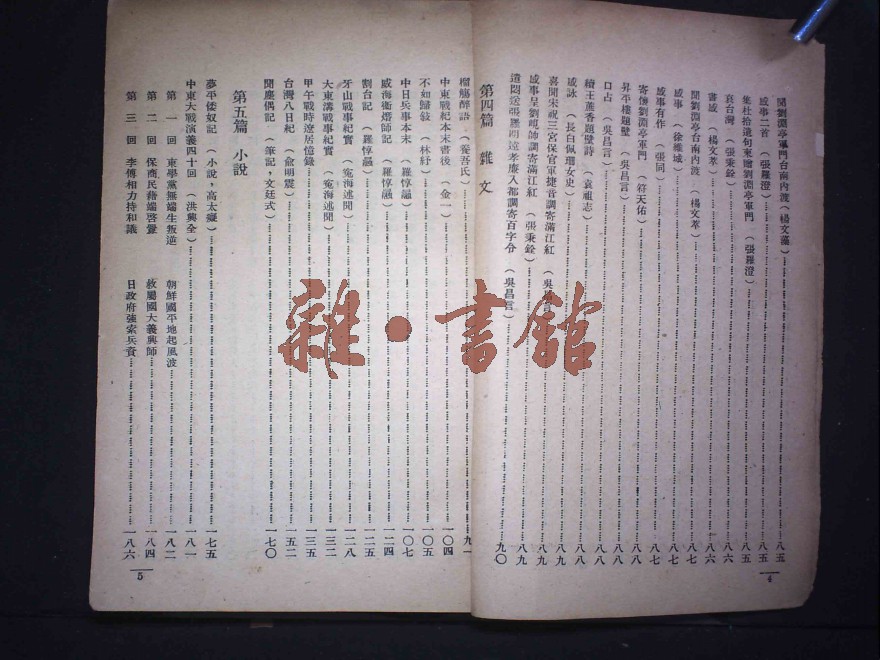 聞劉淵亭軍門台南內渡（楊文藻）……八五
感事二首（張羅澄）……八五
集杜拾遺句柬贈劉淵亭軍門（張羅澄）……八五
哀台灣（張秉銓）……八六
書感（楊文萃）……八六
聞劉淵亭台南內渡（楊文萃）……八七
感事（徐維城）……八七
感事有作（張同）……八七
寄懷劉淵亭軍門（符天佑）……八八
昇平樓題壁（吳昌言）……八八
口占（吳昌言）……八八
續王蓮香題壁詩（袁祖志）……八八
感詠（長白佩珊女史）……八八
喜聞宋祝三宮保官軍捷音調寄滿江紅（吳昌言）……八九
感事呈劉峴帥調寄滿江紅（張秉銓）……八九
遣悶送張麗明遠孝廉入都調寄百字令（吳昌言）……九〇
第四篇 雜文
榴觴醉語（養吾氏）……九一
中東戰紀本末書後（金一）……一〇四
不如歸敍（林紓）……一〇五
中日兵事本末（羅惇曧）……一〇七
威海衞燬師記（羅惇曧）……一二四
割台記（羅惇曧）……一二五
牙山戰事紀實（寃海述聞）……一二八
大東溝戰事紀實（寃海述聞）……一三二
甲午戰時遼居憶錄……一三五
台灣八日紀（俞明震）……一五二
聞塵偶記（筆記，文廷式）……一七〇
第五篇 小說
夢平倭奴記（小說，高太癡）……一七五
中東大戰演義四十回（洪興全）……一八一
第一回 東學黨無端生叛逆 朝鮮國平地起風波……一八二
第二回 保商民藉端啓釁 救屬國大義興師……一八四
第三回 李傅相力持和議 日政府強索兵資……一八六
4
5
雜·書館